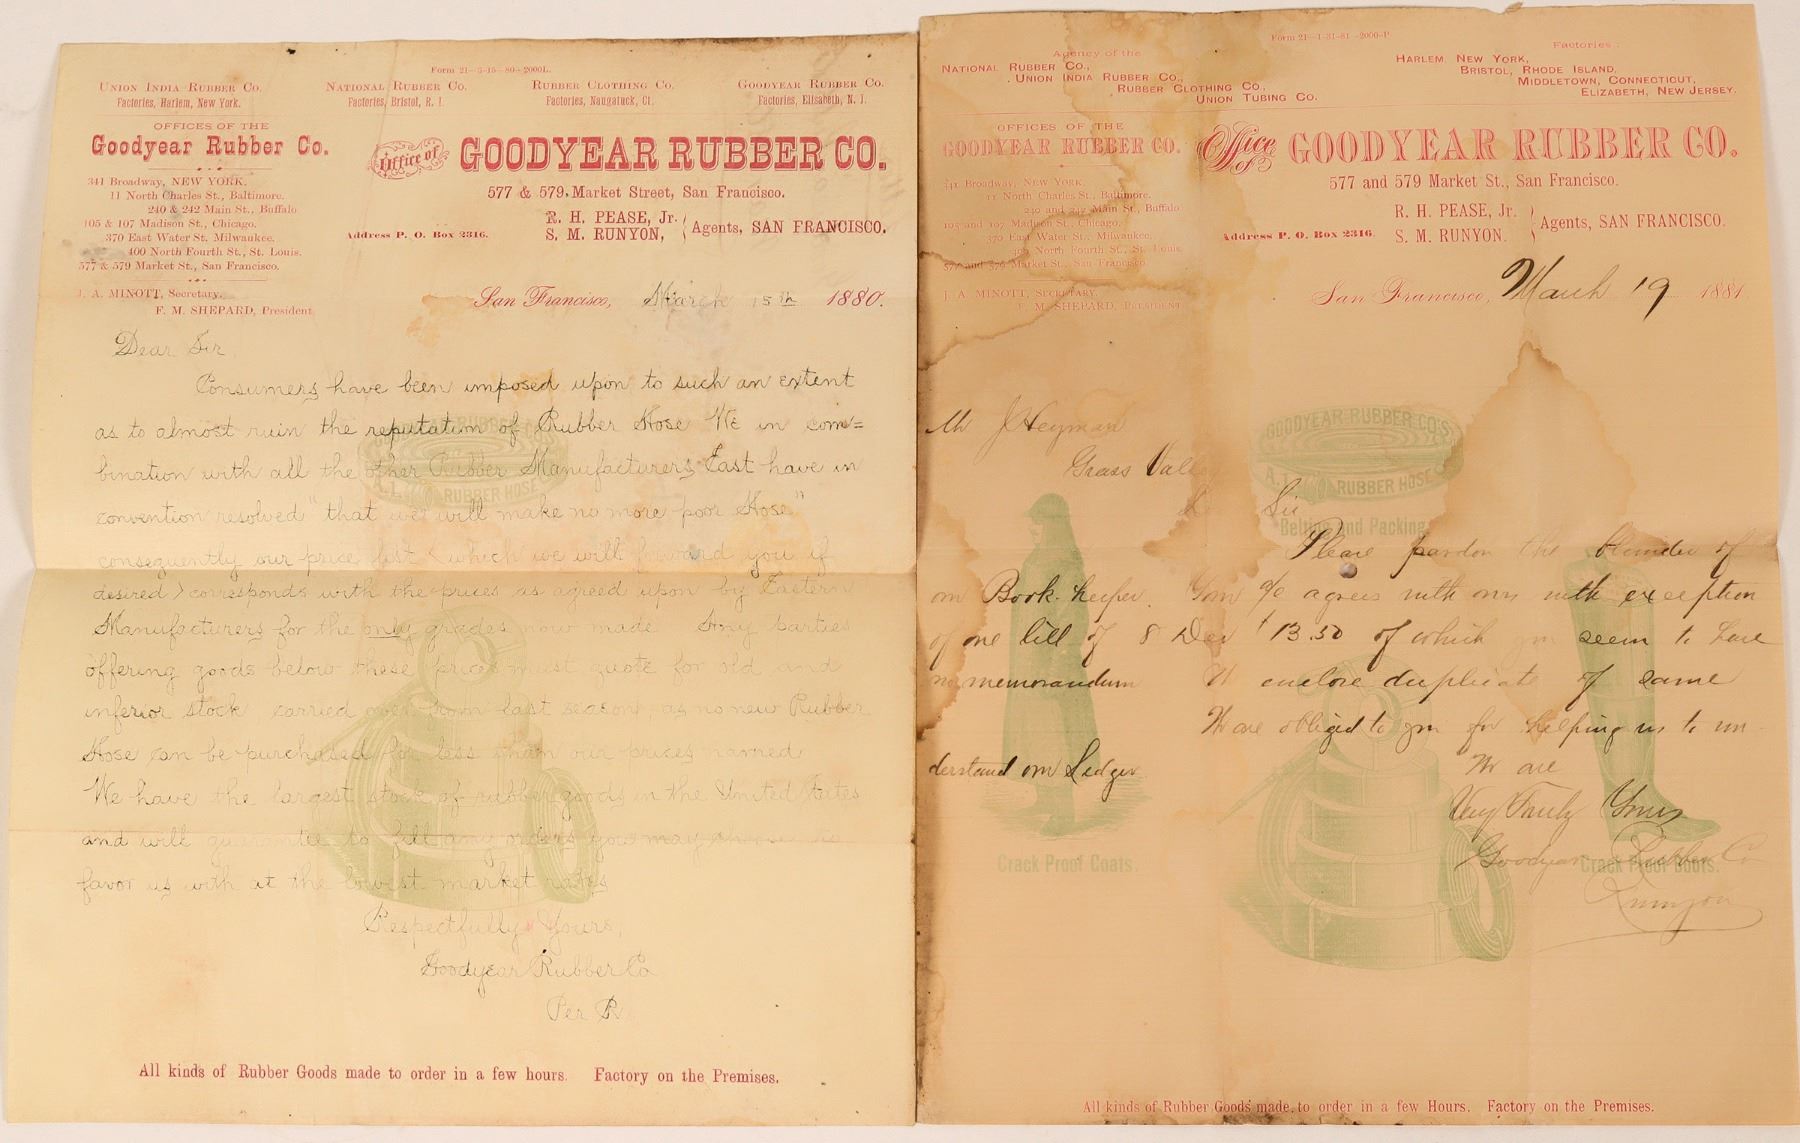 Form 21—3-15—80—2000L.
Union India Rubber Co.
Factories, Harlem, New York.
National Rubber Co.
Factories, Bristol, R. I.
Rubber Clothing Co.
Factories, Naugatuck, Ct.
Goodyear Rubber Co.
Factories, Elisabeth, N. J.
OFFICES OF THE
Goodyear Rubber Co.
341 Broadway, NEW YORK.
11 North Charles St., Baltimore.
240 & 242 Main St., Buffalo
105 & 107 Madison St., Chicago.
370 East Water St. Milwaukee.
400 North Fourth St., St. Louis.
577 & 579 Market St., San Francisco.
J. A. MINOTT, Secretary.
F. M. SHEPARD, President
Office of
GOODYEAR RUBBER CO.
577 & 579 Market Street, San Francisco.
Address P. O. Box 2316.
R. H. PEASE, Jr.
S. M. RUNYON,
Agents, SAN FRANCISCO.
San Francisco, March 15th 1880.
Dear Sir
Consumers have been imposed upon to such an extent
as to almost ruin the reputation of Rubber Hose We in com=
bination with all the other Rubber Manufacturers East have in
convention resolved "that we will make no more poor Hose"
consequently our price list (which we will forward you if
desired) corresponds with the prices as agreed upon by Eastern
Manufacturers for the only grades now made Any parties
offering goods below these prices must quote for old and
inferior stock carried over from last season, as no new Rubber
Hose can be purchased for less than our prices named
We have the largest stock of rubber goods in the United States
and will guarantee to fill any orders you may
favor us with at the lowest market rates
Respectfully Yours,
Goodyear Rubber Co
Per R.
GOODYEAR RUBBER CO'S
A.1. RUBBER HOSE
All kinds of Rubber Goods made to order in a few hours. Factory on the Premises.
Form 21—1-31-81—2000-P
Agency of the
National Rubber Co.,
Union India Rubber Co.,
Rubber Clothing Co.,
Union Tubing Co.
Factories:
Harlem New York,
Bristol, Rhode Island,
Middletown, Connecticut,
Elizabeth, New Jersey.
OFFICES OF THE
GOODYEAR RUBBER CO.
341 Broadway, New York.
11 North Charles St., Baltimore.
240 and 242 Main St., Buffalo
105 and 107 Madison St., Chicago,
370 East Water St., Milwaukee.
400 North Fourth St., St. Louis
577 and 579 Market St., San Francisco.
J. A. MINOTT, Secretary.
F. M. SHEPARD, President
Office of
GOODYEAR RUBBER CO.
577 and 579 Market St., San Francisco.
Address P. O. Box 2316.
R. H. PEASE, Jr.
S. M. RUNYON.
Agents, SAN FRANCISCO.
San Francisco, March 19 1881
Mr J Heyman
Grass Valley
Sir
Please pardon the blunder of
our Book-keeper. Your a/c agrees with ours with exception
of one bill of 8 Dec $13.50 of which you seem to have
no memorandum We enclose duplicate of same
We are obliged to you for helping us to un-
derstand our Ledger
We are
Very Truly Yours
Goodyear Rubber Co
Runyon
GOODYEAR RUBBER CO'S
A.1. RUBBER HOSE
Belting and Packing
Crack Proof Coats.
Crack Proof Boots.
All kinds of Rubber Goods made to order in a few Hours. Factory on the Premises.